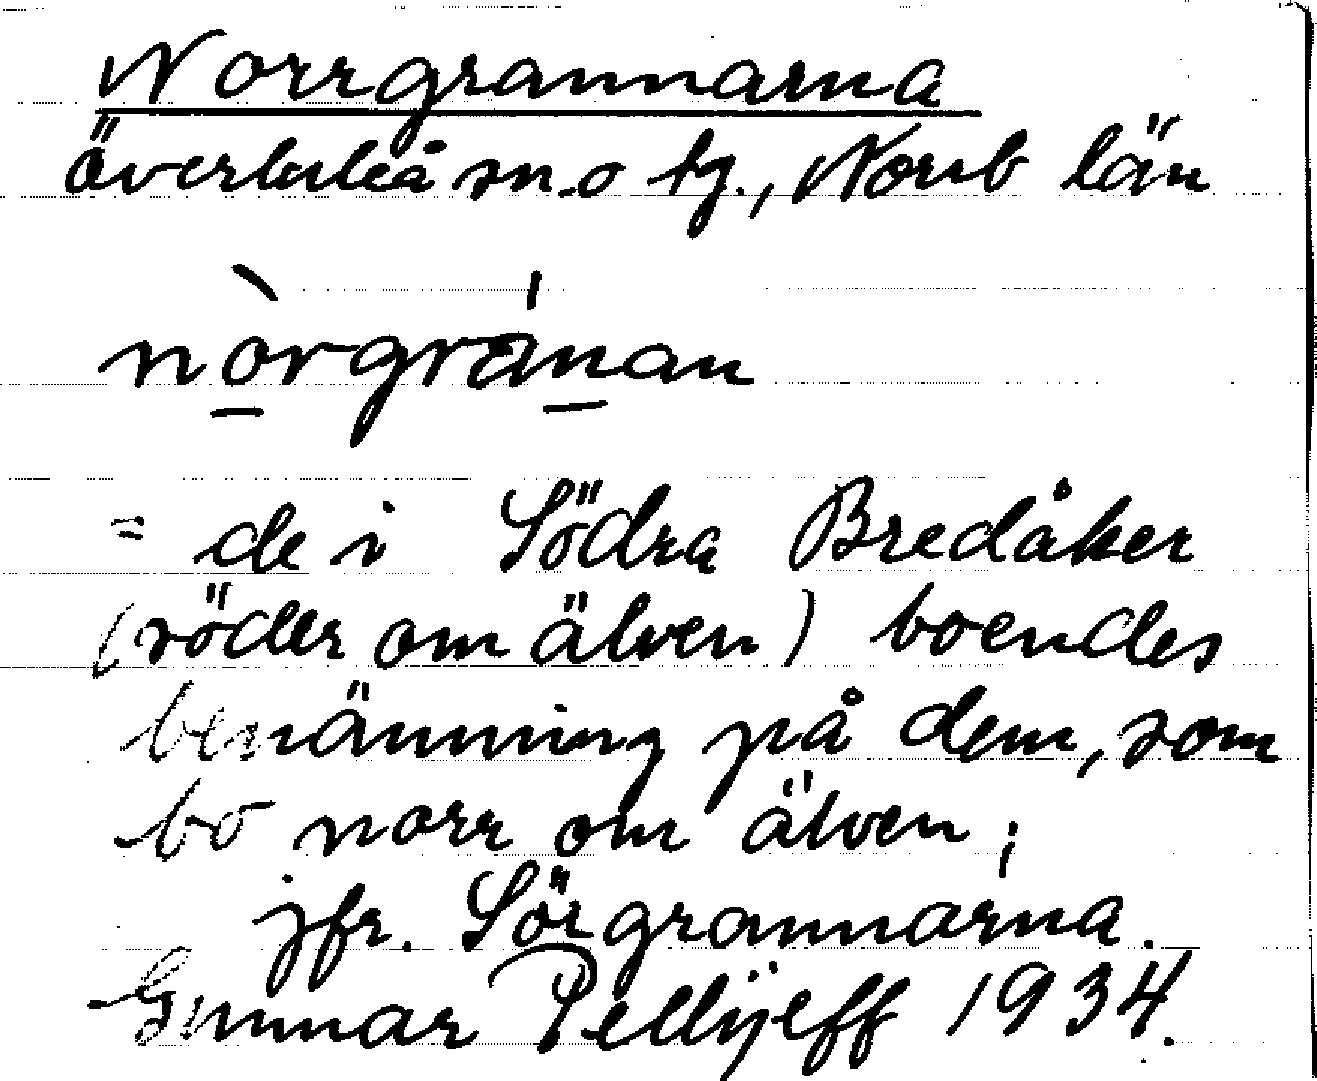 Norrgrannarna
överluleå sn.o tg., Norrb län
nòrgránan
= de i Södra Bredåker
(söder om älven) boendes
benämning på dem, som
bo norr om älven;
jfr. Sörgrannarna.
Gunnar Pellijeff 1934.